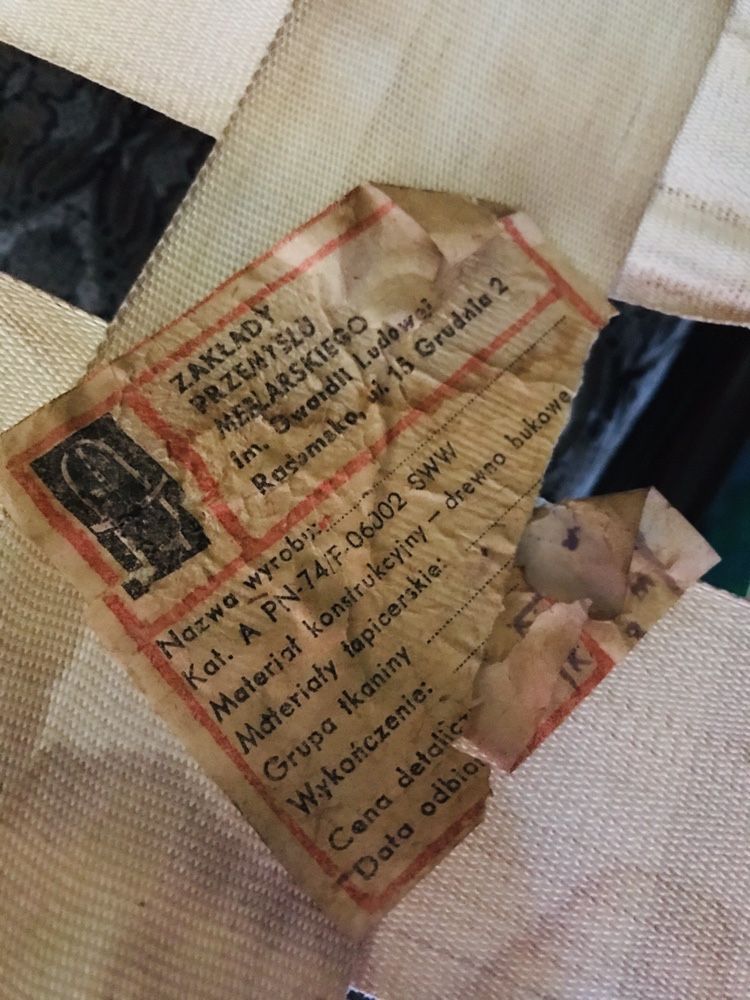 ZAKŁADY
PRZEMYSŁU
MEBLARSKIEGO
im. Gwardii Ludowej
Radomsko, ul. 15 Grudnia 2
Nazwa wyrobu:
Kat. A PN-74/F-06002 SWW
Materiał konstrukcyjny — drewno bukowe
Materiały tapicerskie:
Grupa tkaniny
Wykończenie:
Cena detalicz
Data odbio